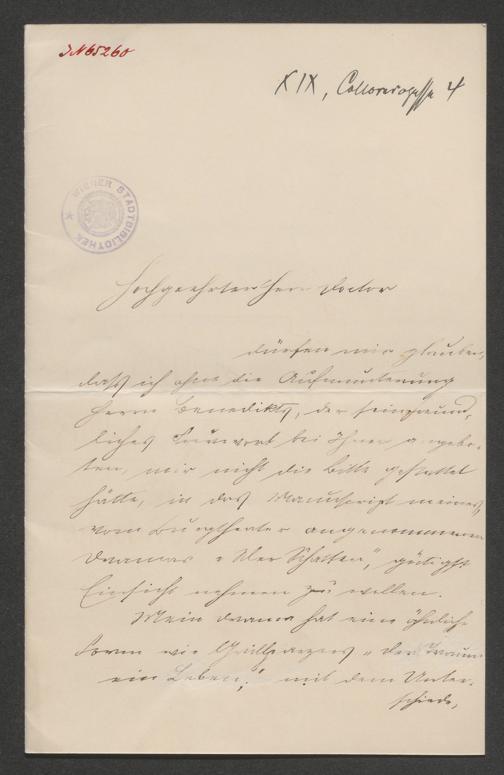 JN65260
XIX, Colloredogasse 4
WIENER STADTBIBLIOTHEK
Hochgeehrter Herr Doctor
dürfen mir glauben,
dass ich ohne die Aufmunterung
Herrn Benedikts, der sein freund-
liches Fürwort bei Ihnen angebo-
ten, mir nicht die Bitte gestattet
hätte, in das Manuscript meines
vom Burgtheater angenommenen
Dramas „Der Schatten", gütigst
Einsicht nehmen zu wollen.
Mein Drama hat eine ähnliche
Form wie Grillparzers „Der Traum
ein Leben", mit dem Unter-
schiede,